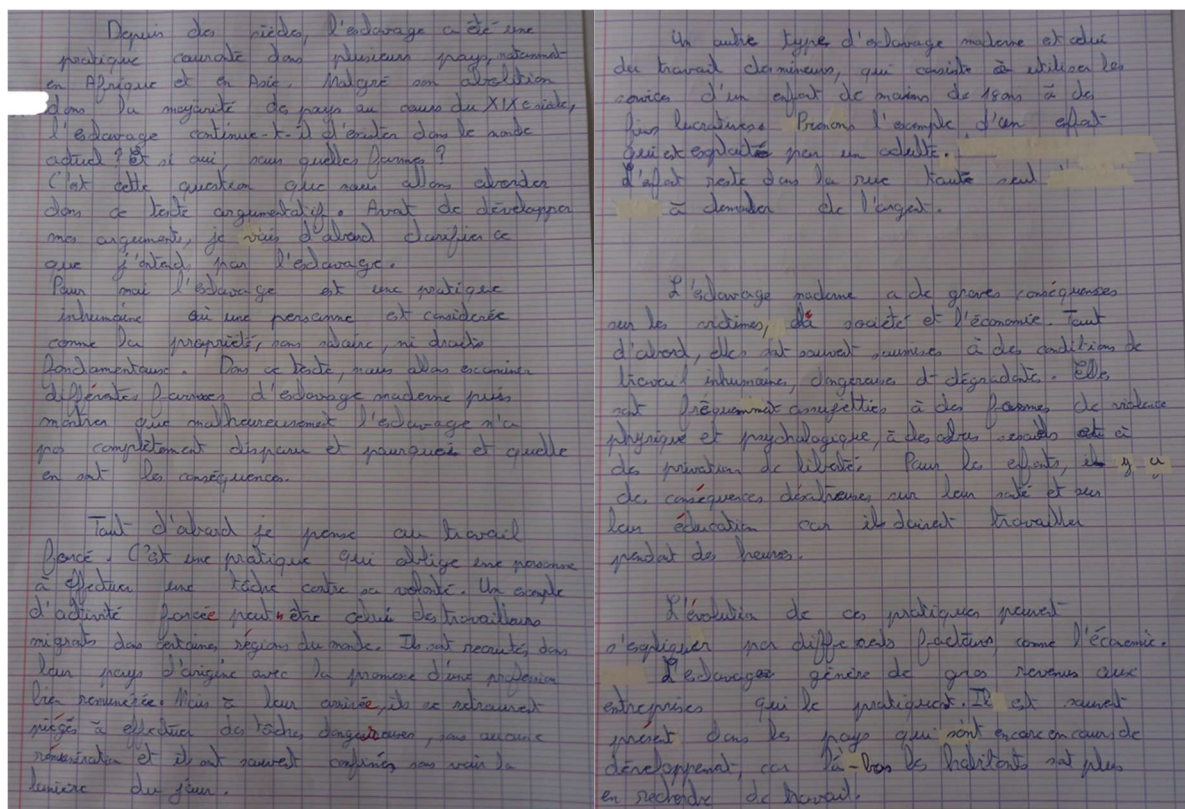 Depuis des siècles, l'esclavage a été une
pratique courante dans plusieurs pays, notamment
en Afrique et en Asie. Malgré son abolition
dans la majorité de pays au cours du XIXe siècle,
l'esclavage continue-t-il d'exister dans le monde
actuel ? Et si oui, sous quelles formes ?
C'est cette question que nous allons aborder
dans ce texte argumentatif. Avant de développer
mes arguments, je vais d'abord clarifier ce
que j'entend par l'esclavage.
Pour moi l'esclavage est une pratique
inhumaine ou une personne est considérée
comme la propriété, sans salaire, ni droits
fondamentaux. Dans ce texte, nous allons examiner
différentes formes d'esclavage moderne puis
montrer que malheureusement l'esclavage n'a
pas complètement disparu et pourquoi et quelle
en sont les conséquences.
Tout d'abord je pense au travail
forcé. C'est une pratique qui oblige une personne
à effectuer une tâche contre sa volonté. Un exemple
d'activité forcée peut-être celui des travailleurs
migrants dans certaines régions du monde. Ils sont recrutés dans
leur pays d'origine avec la promesse d'une profession
bien remunérée. Mais à leur arrivée, ils se retrouvent
piégés à effectuer des tâches dangereuses, sans aucune
rémunération et ils ont souvent confinés sans voir la
lumière du jour.
Un autre types d'esclavage moderne et celui
du travail des mineurs, qui consiste à utiliser les
services d'un enfant de moins de 18 ans à des
fins lucratives. Prenons l'exemple d'un enfant
qui est exploité par un adulte.
L'enfant reste dans la rue tout seul
à demander de l'argent.
L'esclavage moderne a de graves conséquenses
sur les victimes, la société et l'économie. Tout
d'abord, elles sont souvent soumises à des conditions de
travail inhumaine, dangereuse et dégradante. Elles
sont fréquemment assujetties à des formes de violence
physique et psychologique, à des abus sexuels et à
des privation de liberté. Pour les enfants, il y a
des conséquences désastreuses sur leur santé et sur
leur éducation car ils doivent travailler
pendant des heures.
L'évolution de ces pratiques peuvent
s'expliquer par différents facteurs, comme l'économie.
L'esclavage génère de gros revenus aux
entreprises qui le pratiquent. Il est souvent
présent dans les pays qui sont encore en cours de
développement, car là-bas les habitants sont plus
en recherche de travail.